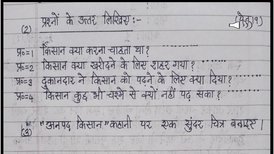 (2) प्रश्नों के उत्तर लिखिए :- (पेज १)
प्र०=1 किसान क्या करना चाहता था ?
प्र०=2 किसान क्या खरीदने के लिए शहर गया ?
प्र०=3 दुकानदार ने किसान को पढ़ने के लिए क्या दिया ?
प्र०=4 किसान कुछ भी चश्मे से क्यों नहीं पढ़ सका ?
(3) "अनपढ़ किसान" कहानी पर एक सुंदर चित्र बनाएँ।